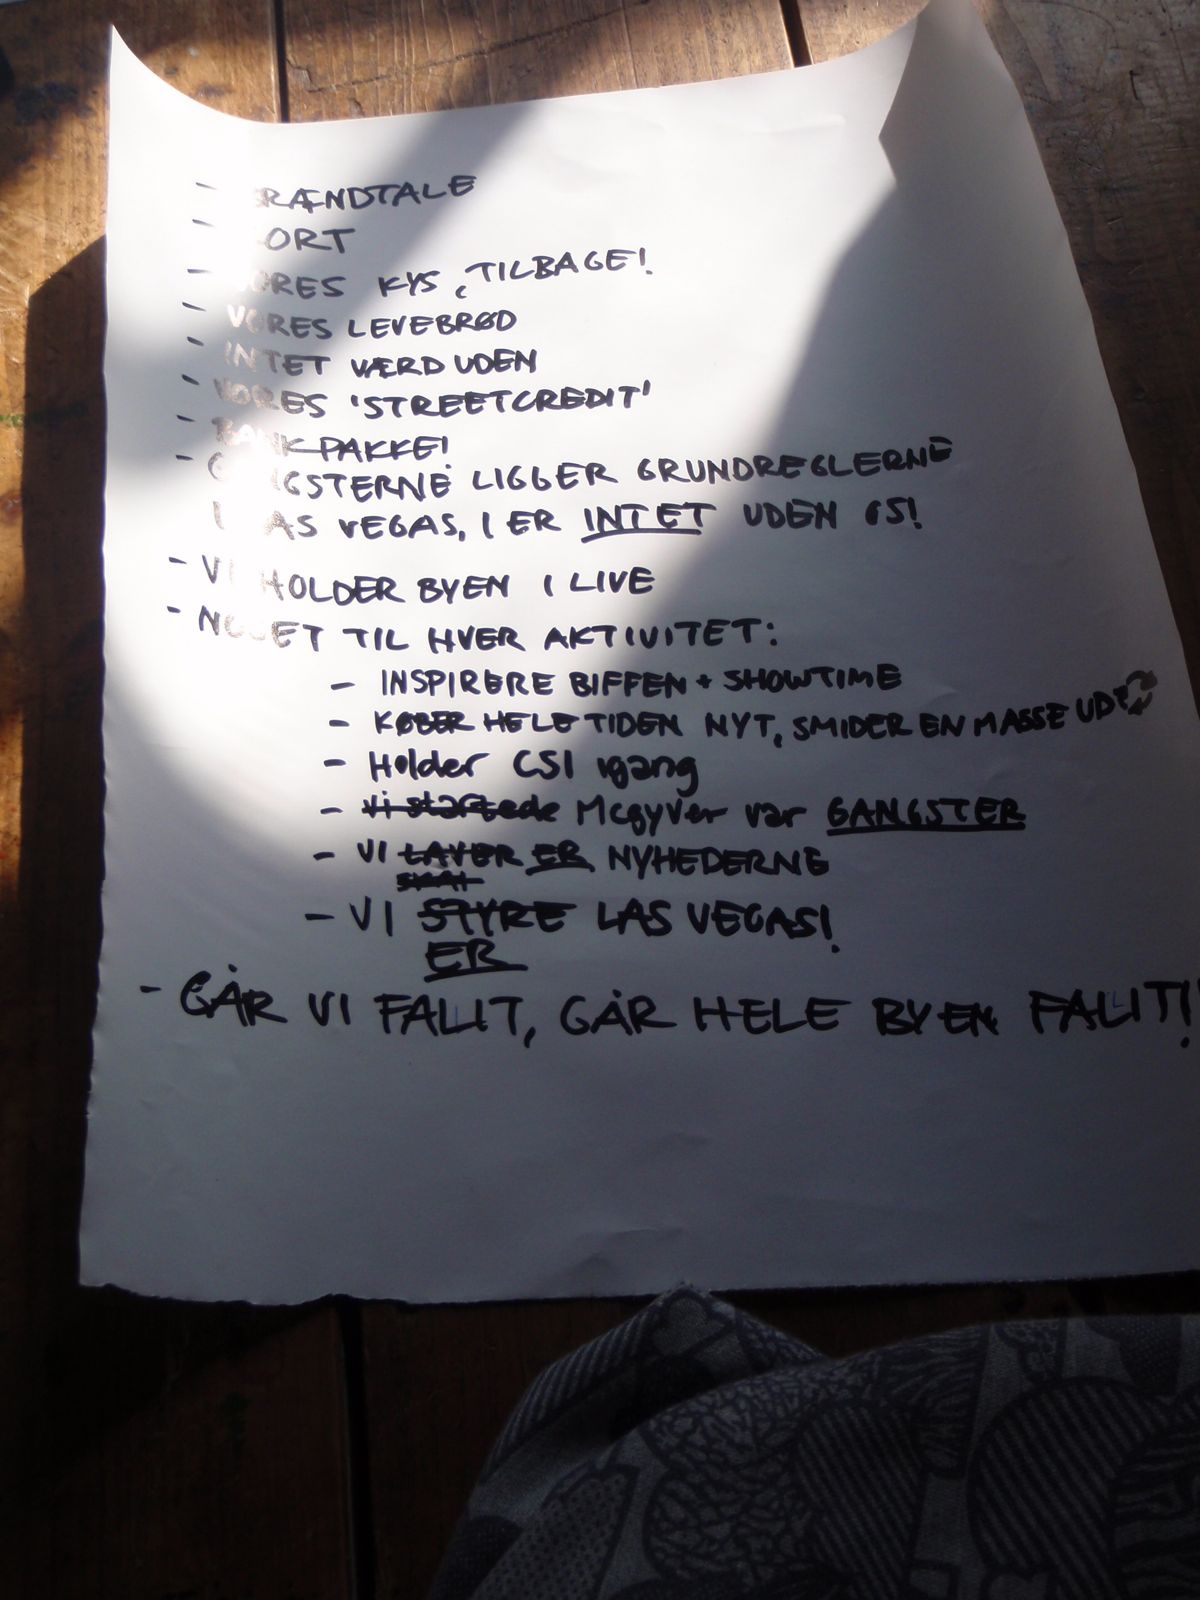 - BRÆNDTALE
- KORT
- VORES KYS, TILBAGE!
- VORES LEVEBRØD
- INTET VÆRD UDEN
- VORES 'STREETCREDIT'
- BANKPAKKE!
- GANGSTERNE LIGGER GRUNDREGLERNE
I LAS VEGAS, I ER INTET UDEN OS!
- VI HOLDER BYEN I LIVE
- NOGET TIL HVER AKTIVITET:
- INSPIRERE BIFFEN + SHOWTIME
- KØBER HELE TIDEN NYT, SMIDER EN MASSE UD
- Holder CSI igang
- Vi startede Mcgyver var GANGSTER
- VI LAVER ER NYHEDERNE
SKAL
- VI STYRE LAS VEGAS!
ER
- GÅR VI FALLIT, GÅR HELE BYEN FALLIT!